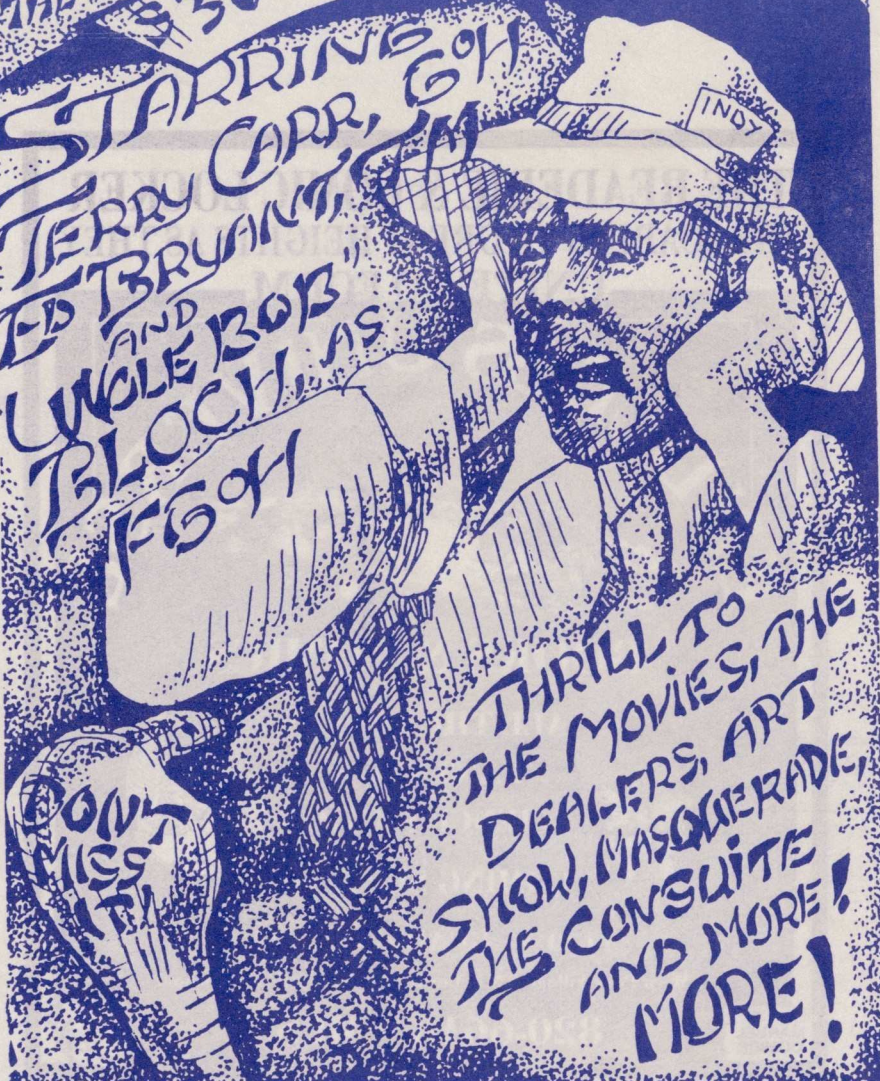 THE
STARRING
TERRY CARR, GOH
ED BRYANT, TM
AND
"UNCLE BOB"
BLOCH, AS
FGOH
INDY
THRILL TO
THE MOVIES, THE
DEALERS, ART
SHOW, MASQUERADE,
THE CONSUITE
AND MORE!
MORE!
DON'T
MISS
IT!